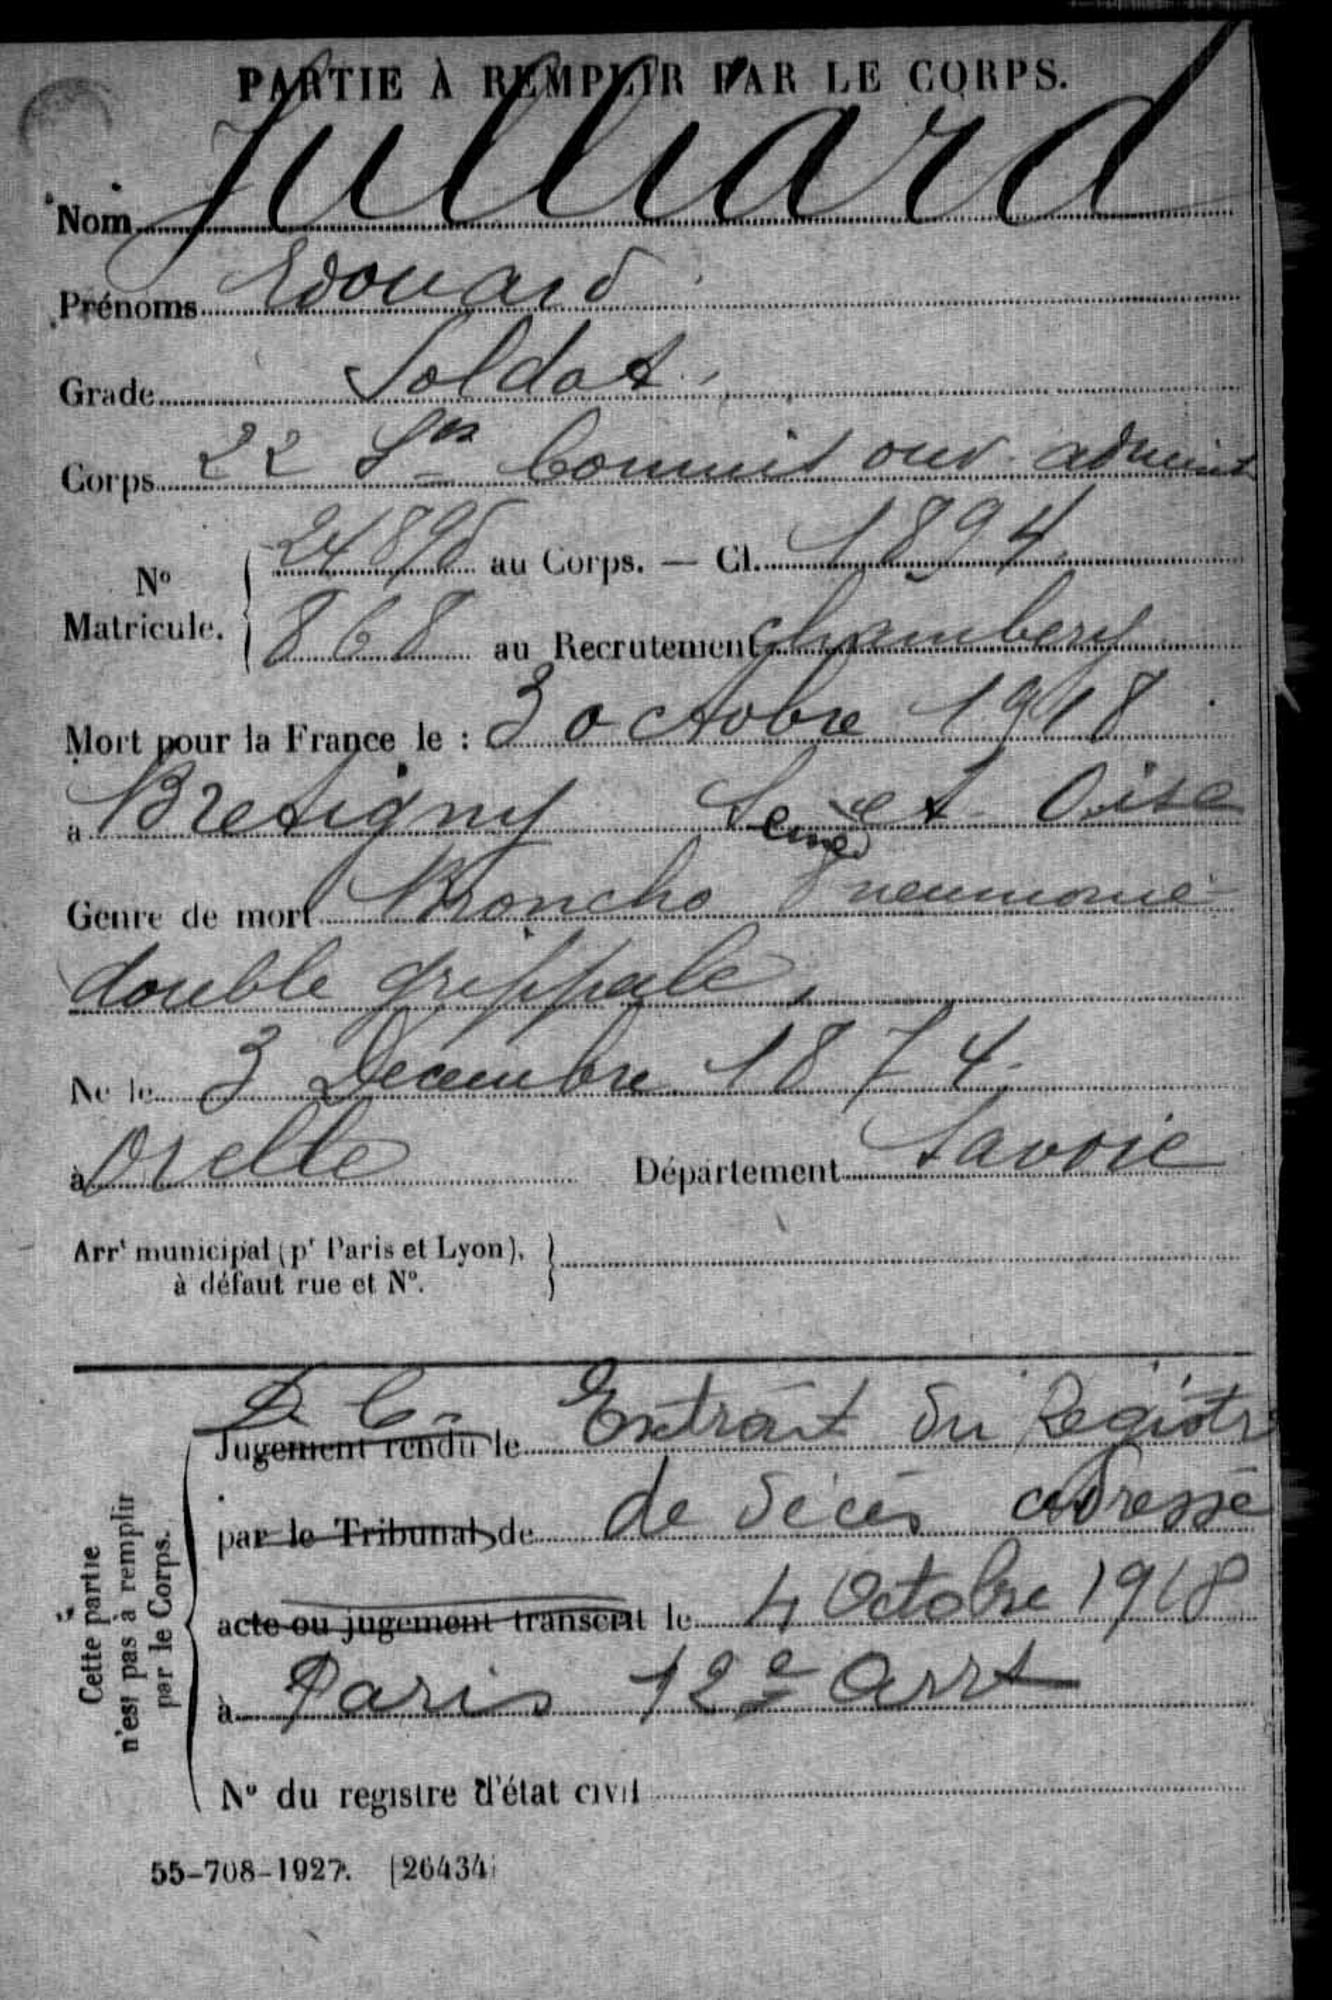 PARTIE À REMPLIR PAR LE CORPS.
Nom Julliard
Prénoms Edouard
Grade Soldat
Corps 22 Son Commis ouv. administ
24898 au Corps. — Cl. 1894
N°
Matricule.
868 au Recrutement Chambery
Mort pour la France le : 3 octobre 1918
à Bretigny Seine et Oise
Genre de mort Broncho Pneumonie
double grippale,
Né le 3 Décembre 1874.
à Orelle Département Savoie
Arrt municipal (pr Paris et Lyon),
à défaut rue et N°.
Extrait du Registre
Jugement rendu le
par le Tribunal de de décès adressé
acte ou jugement transcrit le 4 Octobre 1918
à Paris 12e Arrt
N° du registre d'état civil
Cette partie
n'est pas à remplir
par le Corps.
55-708-1927. [26434]